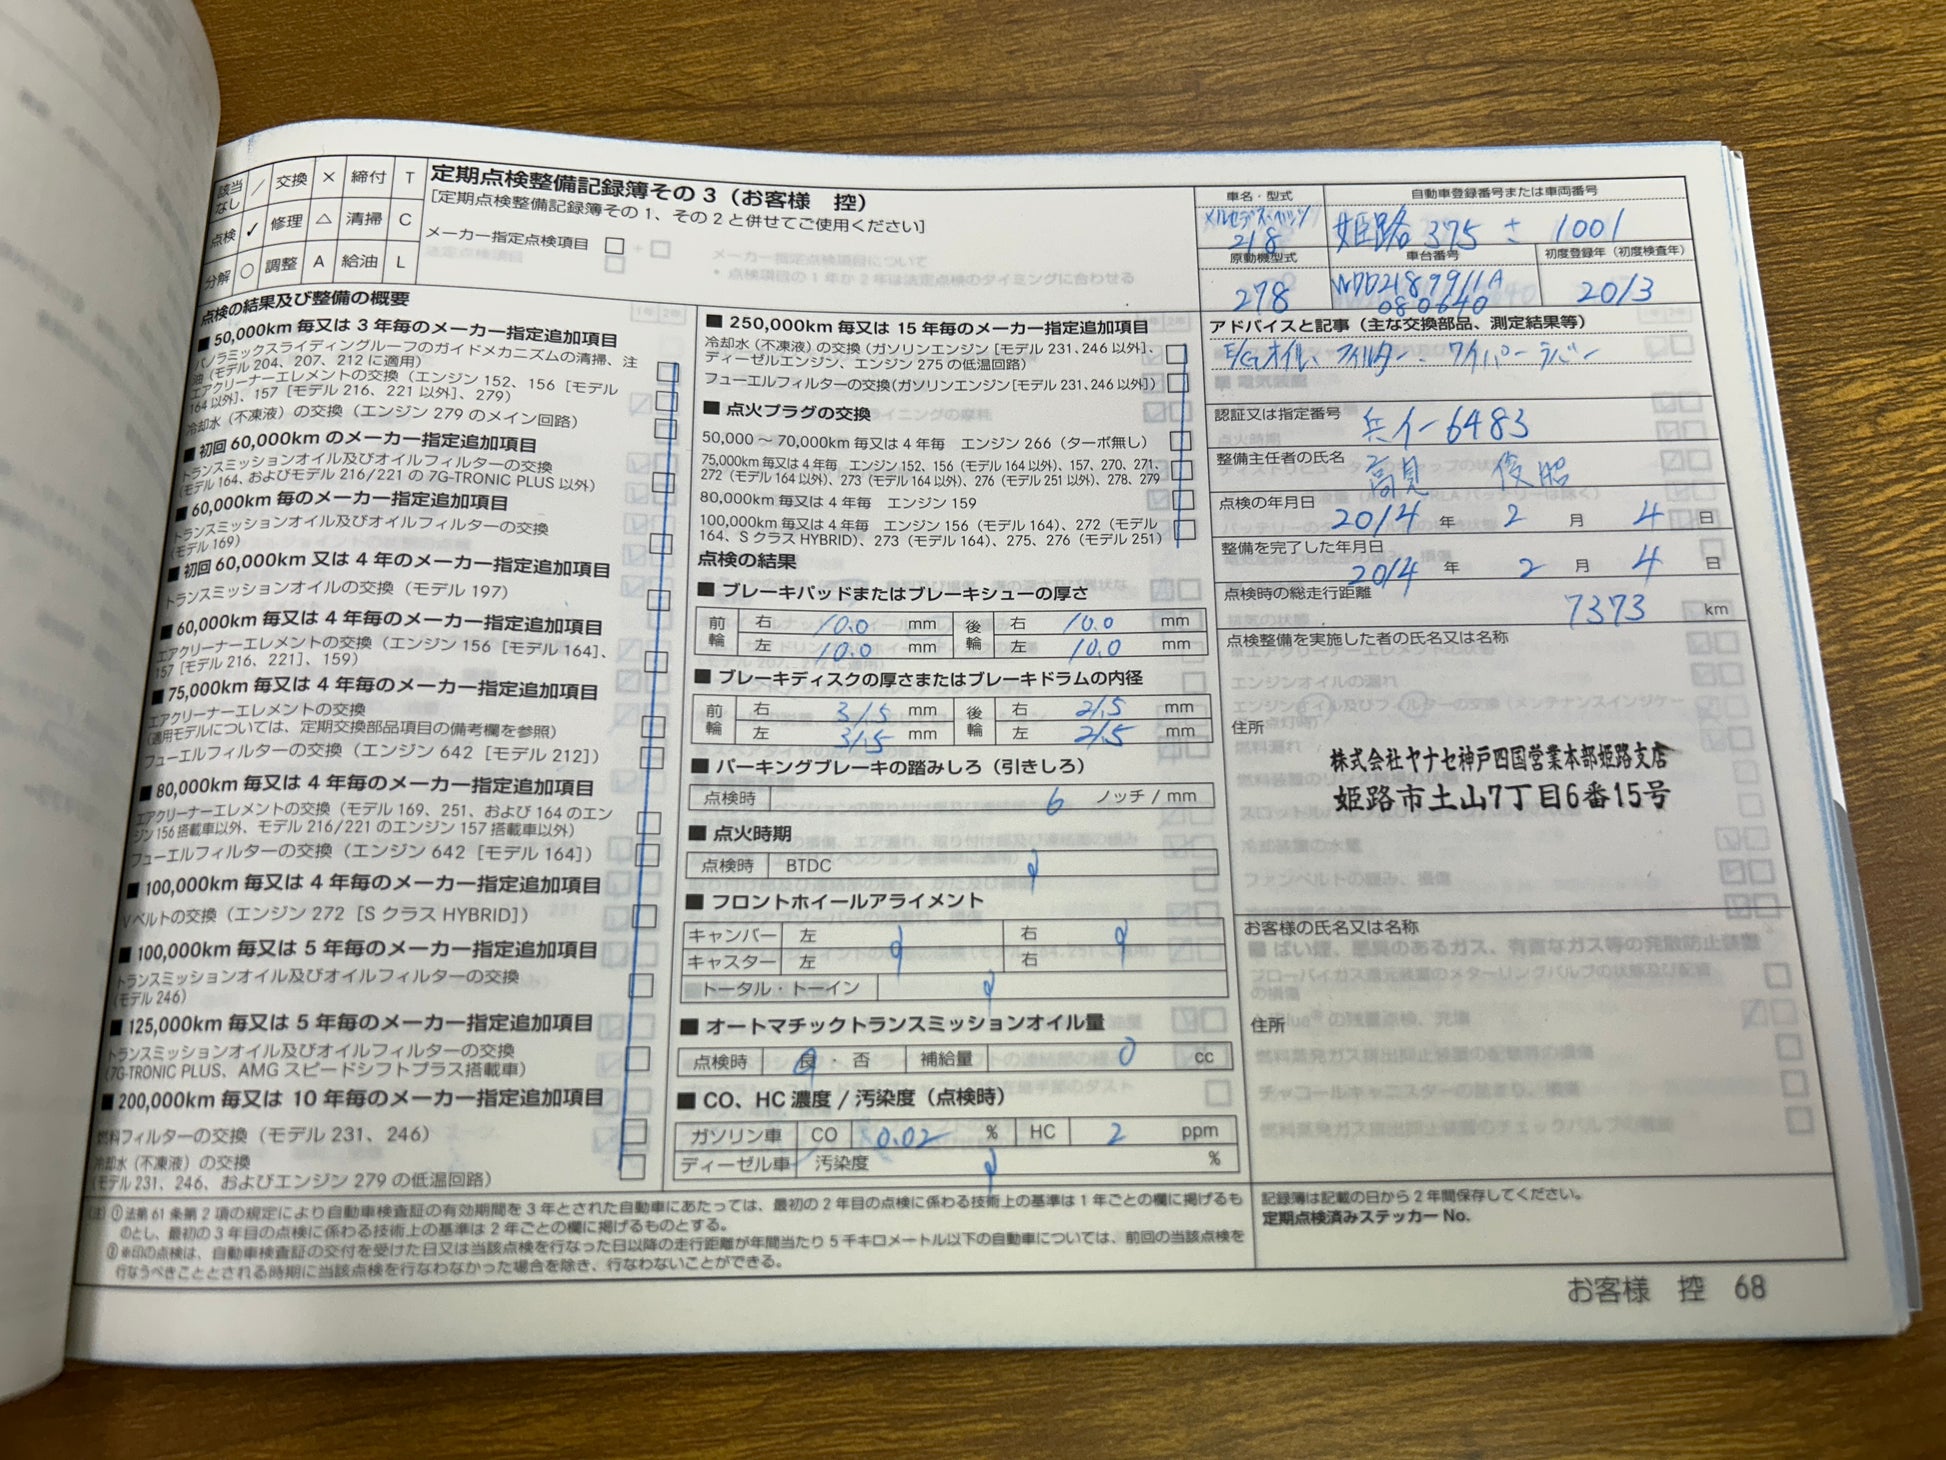 該当なし ／ 交換 × 締付 T
点検 ✓ 修理 △ 清掃 C
分解 ○ 調整 A 給油 L
定期点検整備記録簿その3（お客様　控）
［定期点検整備記録簿その1、その2と併せてご使用ください］
メーカー指定点検項目 □
点検の結果及び整備の概要
■ 50,000km 毎又は 3 年毎のメーカー指定追加項目
パノラミックスライディングルーフのガイドメカニズムの清掃、注
油（モデル 204、207、212 に適用）
エアクリーナーエレメントの交換（エンジン 152、156［モデル
164 以外］、157［モデル 216、221 以外］、279）
冷却水（不凍液）の交換（エンジン 279 のメイン回路）
■ 初回 60,000km のメーカー指定追加項目
トランスミッションオイル及びオイルフィルターの交換
（モデル 164、およびモデル 216/221 の 7G-TRONIC PLUS 以外）
■ 60,000km 毎のメーカー指定追加項目
トランスミッションオイル及びオイルフィルターの交換
（モデル 169）
■ 初回 60,000km 又は 4 年のメーカー指定追加項目
トランスミッションオイルの交換（モデル 197）
■ 60,000km 毎又は 4 年毎のメーカー指定追加項目
エアクリーナーエレメントの交換（エンジン 156［モデル 164］、
157［モデル 216、221］、159）
■ 75,000km 毎又は 4 年毎のメーカー指定追加項目
エアクリーナーエレメントの交換
（適用モデルについては、定期交換部品項目の備考欄を参照）
フューエルフィルターの交換（エンジン 642［モデル 212］）
■ 80,000km 毎又は 4 年毎のメーカー指定追加項目
エアクリーナーエレメントの交換（モデル 169、251、および 164 のエン
ジン 156 搭載車以外、モデル 216/221 のエンジン 157 搭載車以外）
フューエルフィルターの交換（エンジン 642［モデル 164］）
■ 100,000km 毎又は 4 年毎のメーカー指定追加項目
Vベルトの交換（エンジン 272［S クラス HYBRID］）
■ 100,000km 毎又は 5 年毎のメーカー指定追加項目
トランスミッションオイル及びオイルフィルターの交換
（モデル 246）
■ 125,000km 毎又は 5 年毎のメーカー指定追加項目
トランスミッションオイル及びオイルフィルターの交換
（7G-TRONIC PLUS、AMG スピードシフトプラス搭載車）
■ 200,000km 毎又は 10 年毎のメーカー指定追加項目
燃料フィルターの交換（モデル 231、246）
冷却水（不凍液）の交換
（モデル 231、246、およびエンジン 279 の低温回路）
■ 250,000km 毎又は 15 年毎のメーカー指定追加項目
冷却水（不凍液）の交換（ガソリンエンジン［モデル 231、246 以外］、
ディーゼルエンジン、エンジン 275 の低温回路）
フューエルフィルターの交換（ガソリンエンジン［モデル 231、246 以外］）
■ 点火プラグの交換
50,000 ～ 70,000km 毎又は 4 年毎　エンジン 266（ターボ無し）
75,000km 毎又は 4 年毎　エンジン 152、156（モデル 164 以外）、157、270、271、
272（モデル 164 以外）、273（モデル 164 以外）、276（モデル 251 以外）、278、279
80,000km 毎又は 4 年毎　エンジン 159
100,000km 毎又は 4 年毎　エンジン 156（モデル 164）、272（モデル
164、S クラス HYBRID）、273（モデル 164）、275、276（モデル 251）
点検の結果
■ ブレーキパッドまたはブレーキシューの厚さ
前輪 右 10.0 mm 後輪 右 10.0 mm
左 10.0 mm 左 10.0 mm
■ ブレーキディスクの厚さまたはブレーキドラムの内径
前輪 右 31.5 mm 後輪 右 21.5 mm
左 31.5 mm 左 21.5 mm
■ パーキングブレーキの踏みしろ（引きしろ）
点検時 6 ノッチ / mm
■ 点火時期
点検時 BTDC
■ フロントホイールアライメント
キャンバー 左 右
キャスター 左 右
トータル・トーイン
■ オートマチックトランスミッションオイル量
点検時 良・否 補給量 0 cc
■ CO、HC 濃度 / 汚染度（点検時）
ガソリン車 CO 0.02 % HC 2 ppm
ディーゼル車 汚染度 %
車名・型式 自動車登録番号または車両番号
メルセデスベンツ
218 姫路 375 も 1001
原動機型式 車台番号 初度登録年（初度検査年）
278 WDD2189911A
080640 2013
アドバイスと記事（主な交換部品、測定結果等）
E/Gオイル、フィルター、ワイパーラバー
認証又は指定番号 兵イ-6483
整備主任者の氏名 高見 俊照
点検の年月日 2014 年 2 月 4 日
整備を完了した年月日
2014 年 2 月 4 日
点検時の総走行距離 7373 km
点検整備を実施した者の氏名又は名称
住所
株式会社ヤナセ神戸四国営業本部姫路支店
姫路市土山7丁目6番15号
お客様の氏名又は名称
住所
記録簿は記載の日から 2 年間保存してください。
定期点検済みステッカー No.
（注）①法第 61 条第 2 項の規定により自動車検査証の有効期間を 3 年とされた自動車にあたっては、最初の 2 年目の点検に係わる技術上の基準は 1 年ごとの欄に掲げるも
のとし、最初の 3 年目の点検に係わる技術上の基準は 2 年ごとの欄に掲げるものとする。
②※印の点検は、自動車検査証の交付を受けた日又は当該点検を行なった日以降の走行距離が年間当たり 5 千キロメートル以下の自動車については、前回の当該点検を
行なうべきこととされる時期に当該点検を行なわなかった場合を除き、行なわないことができる。
お客様　控　68